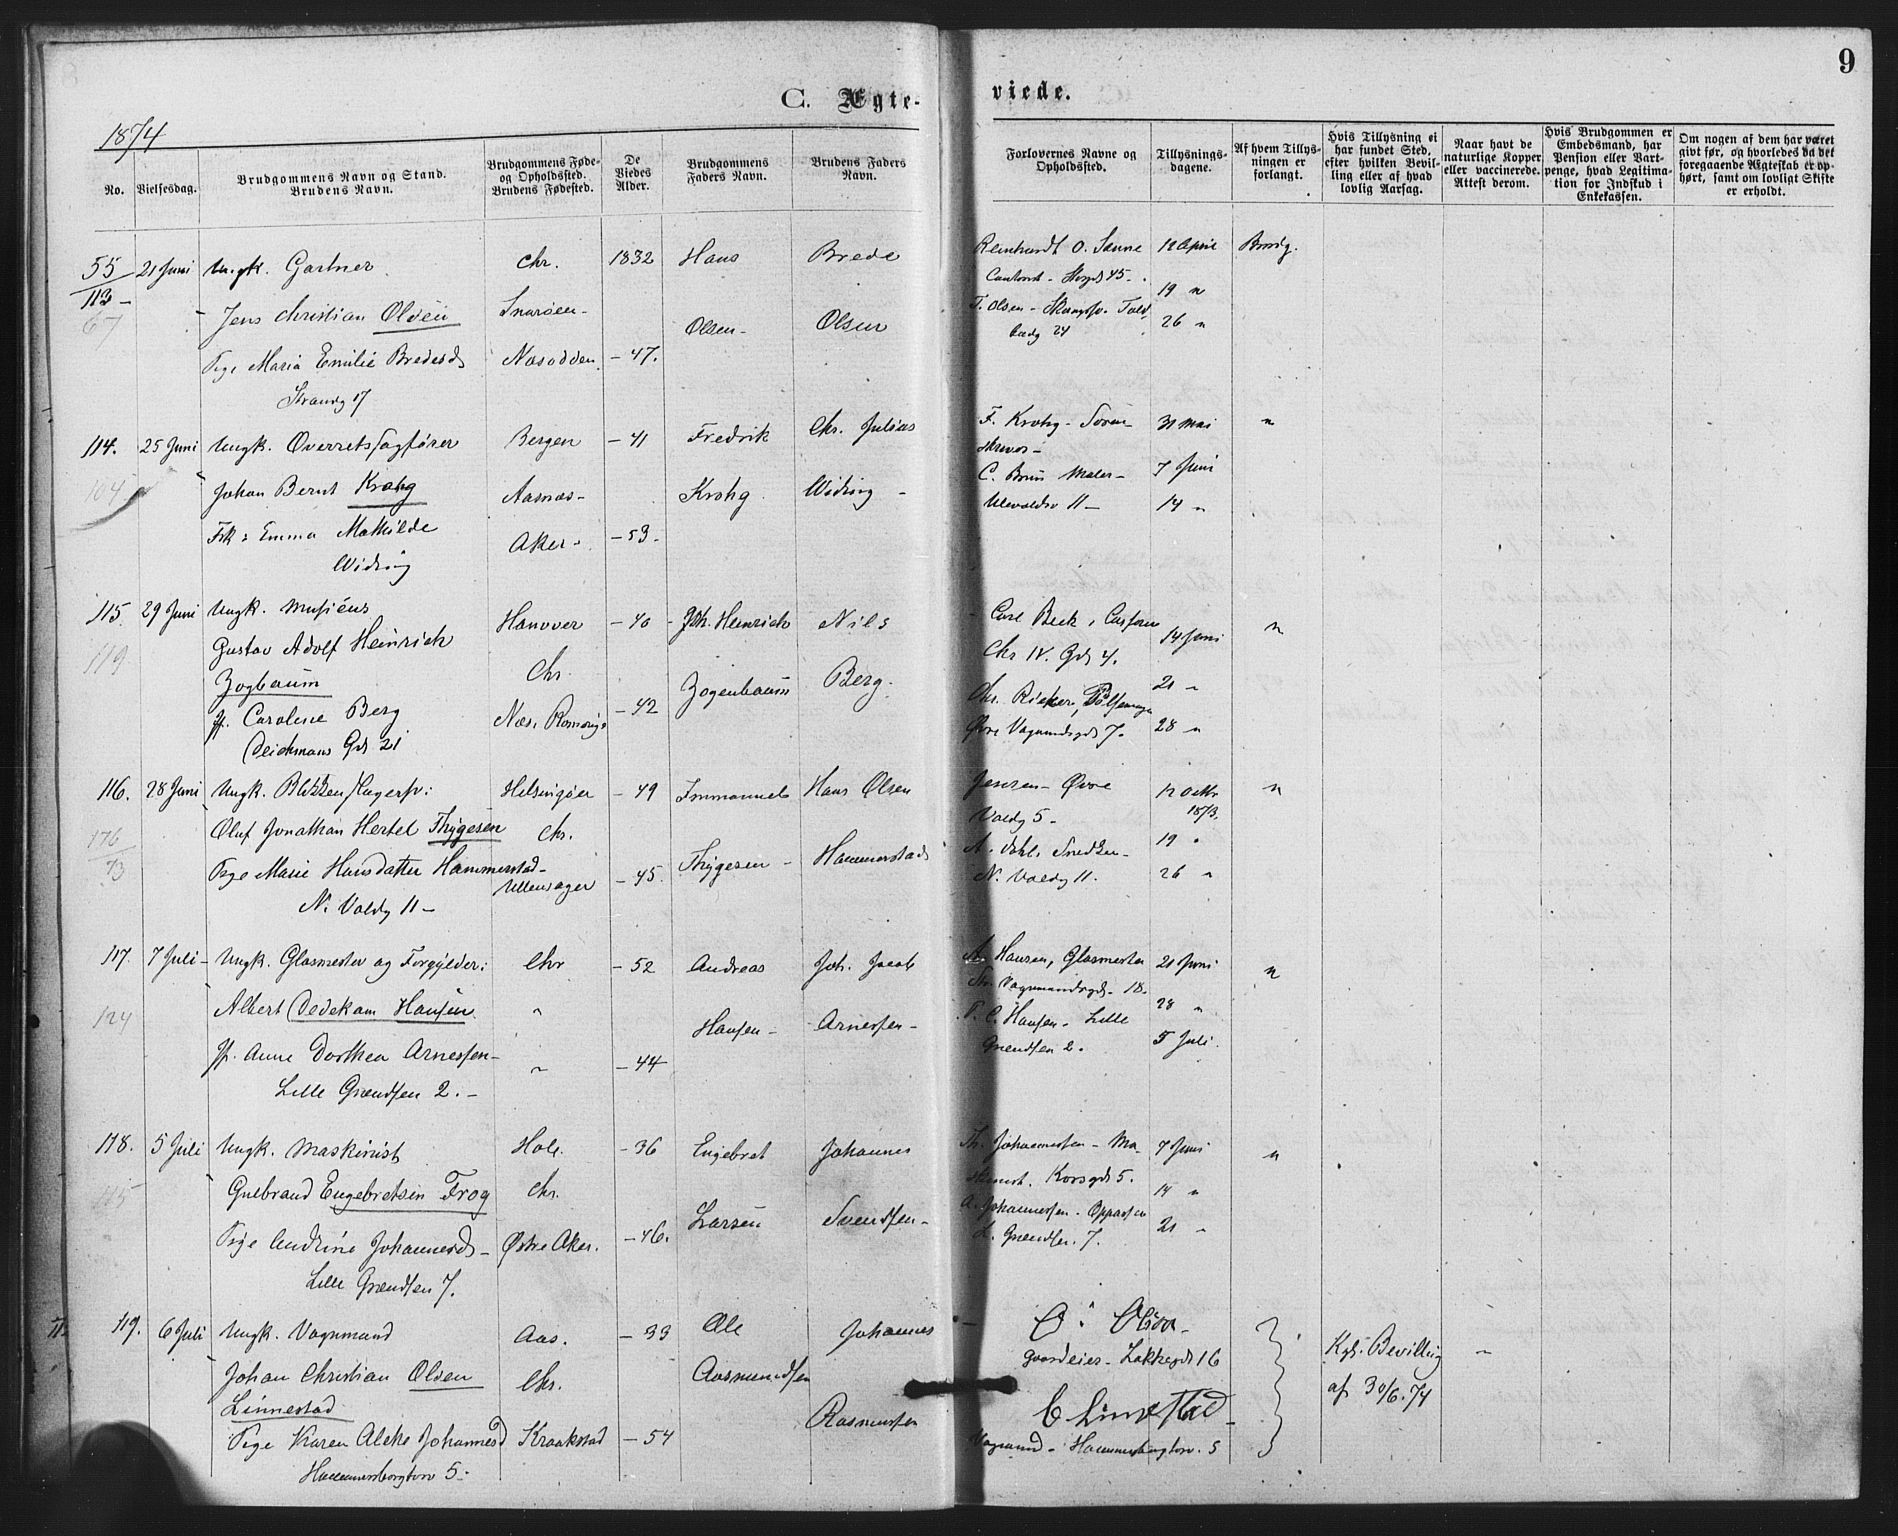 9
C. Ægte-
viede.
1874
No.
Vielsesdag.
Brudgommens Navn og Stand.
Brudens Navn.
Brudgommens Føde-
og Opholdssted.
Brudens Fødested.
De
Viedes
Alder.
Brudgommens
Faders Navn.
Brudens Faders
Navn.
Forlovernes Navne og
Opholdssted.
Tillysnings-
dagene.
Af hvem Tillys-
ningen er
forlangt.
Hvis Tillysning ei
har fundet Sted,
efter hvilken Bevil-
ling eller af hvad
lovlig Aarsag.
Naar havt de
naturlige Kopper
eller vaccinerede.
Attest derom.
Hvis Brudgommen er
Embedsmand, har
Pension eller Vart-
penge, hvad Legitima-
tion for Indskud i
Enkekassen.
Om nogen af dem har været
givt før, og hvorledes da det
foregaaende Ægteskab er op-
hørt, samt om lovligt Skifte
er erholdt.
55 21 Juni Ungk. Gartner Chr. 1832 Hans Brede
113
67
Jens Christian Olsen Snarøen Olsen Olsen
Pige Maria Emilie Bredesd. Næsodden - 47.
Strandg 17
Reinhardt O. Sanne 12 April Brudg.
Storgd 45
19 "
T. Olsen - Told
24 26 "
114. 25 Juni Ungk. Overretssagfører Bergen - 41 Fredrik Chr. Julius
104
Johan Bernt Krohg Aasnæs Krohg Widing
Frk: Emma Mathilde Aker - 53
Widing
F. Krohg - Soren- 31 Mai "
skriver
C. Brun Maler - 7 Juni
Ullevoldsv 11 - 14 "
115. 29 Juni Ungk. Musicus Hanover - 40 Joh. Heinrich Nils
119
Gustav Adolf Heinrich Chr.
Zogbaum Zogenbaum Berg
Jf. Caroline Berg Næs. Romerige - 42
Deichmans Gd 21
Carl Beck, 14 Juni "
Chr IV. Gd 4.
Chr. Pølsemager 21 "
Øvre Vognmdsgd 7. 28 "
116. 28 Juni Ungk. Blikkenslagersv: Helsingøer - 49 Immanuel Hans Olsen
176
73
Oluf Jonathan Hertel Thygesen Chr. Thygesen Hammerstad
Pige Marie Hansdatter Hammerstad Ullensager - 45.
N. Voldg 11 -
Jensen - Øvre 12 Oktbr "
Voldg 5 - 1873.
A. Dahl. Snedker - 19 "
N. Voldg 11. 26 "
117. 7 Juli Ungk. Glasmester og Forgylder: Chr - 52 Andreas Joh. Jacob
124
Albert Dedekam Hansen " Hansen Arnessen
Jf. Anne Dorthea Arnessen " - 44
Lille Grændsen 2. -
A. Hansen, Glasmester 21 Juni "
Vognmandsgd. 18. 28 "
T. C. Hansen - Lille
Grændsen 2. 5 Juli.
118. 5 Juli Ungk. Maskinist Hole. - 36 Engebret Johannes
115
Gulbrand Engebretsen Frog Chr. Larsen Svendsen
Pige Andrine Johannesd. Østre Aker. - 46.
Lille Grændsen 7.
Th. Johannessen - Ma- 7 Juni "
skinist. Korsgd 5. 14 "
A. Johannessen. Oppasser
L. Grændsen. 7. 21 "
119. 6 Juli Ungk. Vognmand Aas. - 33 Ole Johannes
Johan Christian Olsen Chr. Aasmundsen
Linnestad Rasmussen
Pige Karen Alette Johannesd Kraakstad - 54
Hammersborgtorv 5.
O. Olsen
Gaardeier - Lakkegd 16
C Linnestad
Vognmd - Hammersborgtorv. 5
Kgl. Bevilling
af 30/6. 74
"